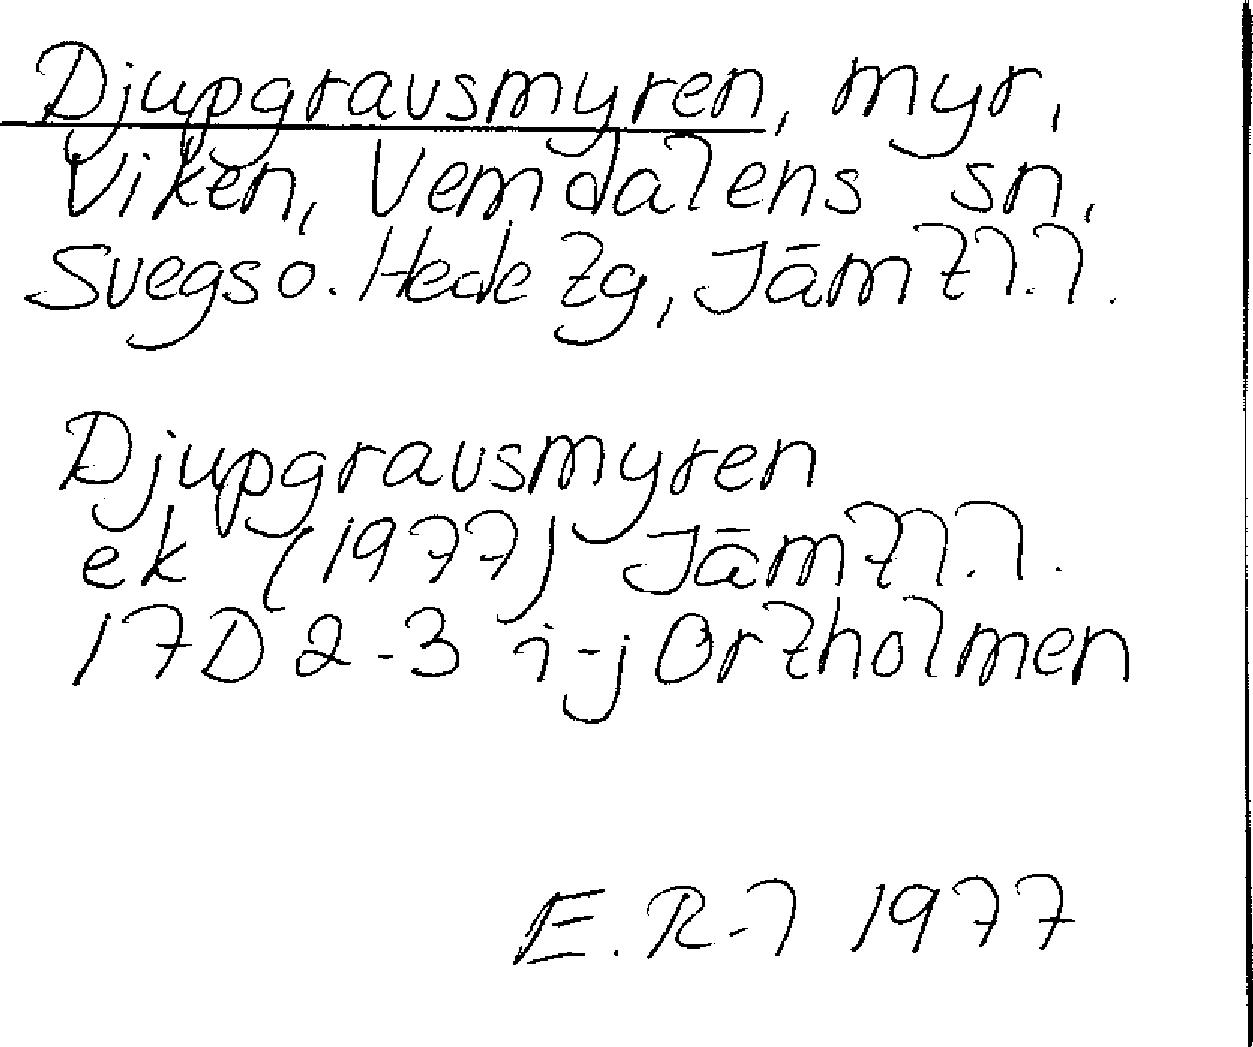 Djupgravsmyren, myr,
Viken, Vemdalens sn,
Svegs o. Hede tg, Jämtl.l.
Djupgravsmyren
ek (1977) Jämtl.l.
17D 2-3 i-j Ortholmen
E. R-l 1977